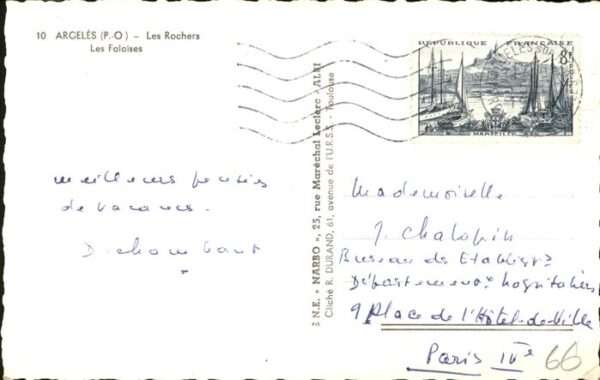 10 ARGELÈS (P.-O) – Les Rochers
Les Falaises
RÉPUBLIQUE FRANÇAISE
8F
MARSEILLE
ARGELÈS SUR
S.N.E. « NARBO », 25, rue Maréchal Leclerc - ALBI
Cliché R. DURAND, 61, avenue de l'U.R.S.S. - Toulouse
meilleures pensées
de vacances.
Mademoiselle
J. Chalopin
Bureau des Etabliss ts
Départementx hospitaliers
9 Place de l'Hôtel-de-Ville
Paris IVe
66